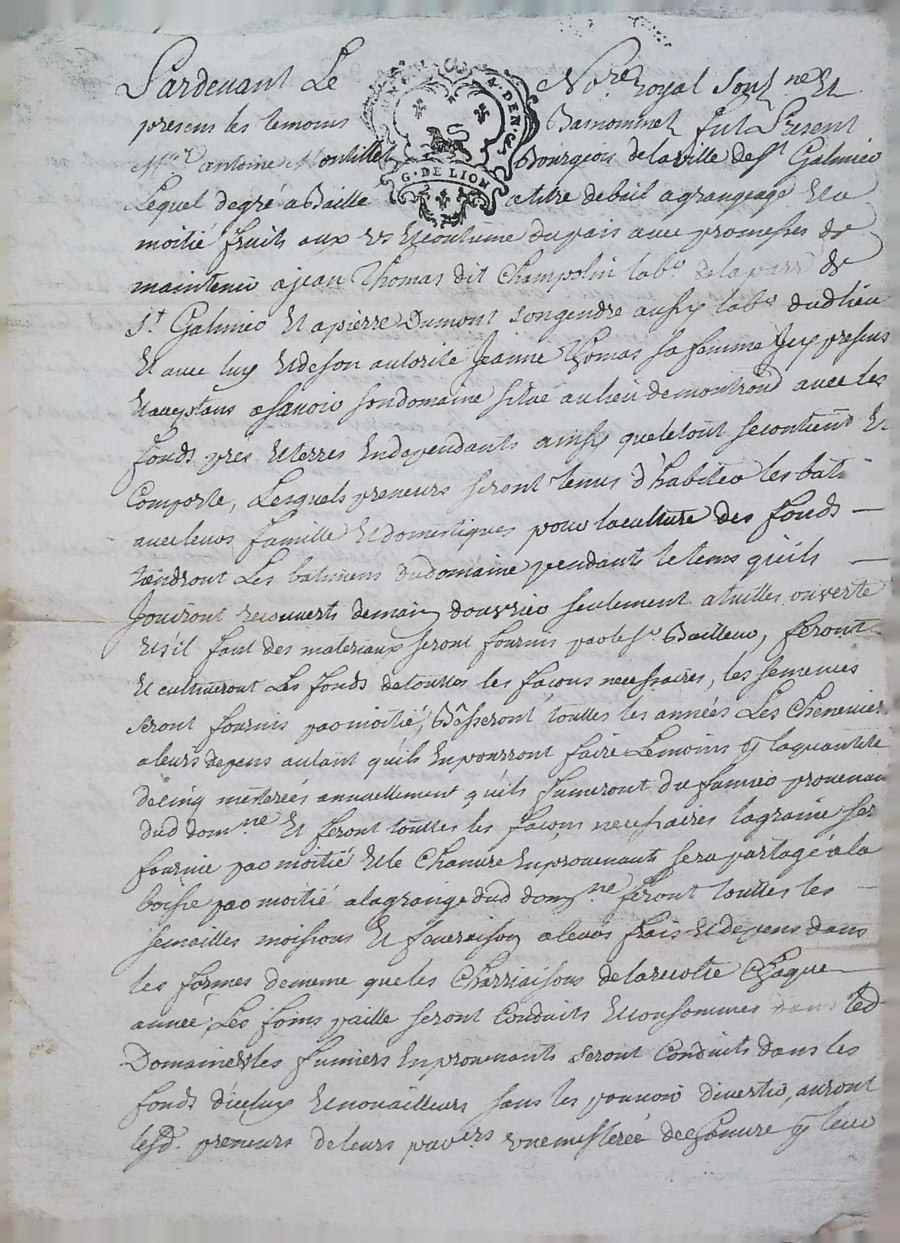 Pardevant Le No.re royal souss.ne Et
presens les temoins Basnommes fut Present
M.re antoine Montillet Bourgeois de la ville de St Galmier
Lequel de gré a Baille a titre de bail a grangeage Et a
G. DE LION
4. DEN. S
moitié fruits aux us et coutume du pais avec promesses de
maintenir a jean Thomas dit Champolin lab.r de la parr de
S.t Galmier Et a pierre Dumont son gendre aussy lab.r dud lieu
Et avec luy Et de son autorité Jeanne Thomas sa femme Icy presens
Et aceptans asavoir son domaine situé au lieu de montrond avec les
fonds prés Et terres En dependants ainsy que le tout se contient Et
Comporte, Lesquels preneurs seront tenus d'habiter les bati
avec leurs famille Et domestiques pour la culture des fonds —
tiendront Les batimens du domaine pendant le tems qu'ils —
Jouiront recouverts de main d'ouvrier seulement a tuilles ouverte
Et s'il faut des materiaux seront fournis par le s.r Bailleur, feront
Et cultiveront Les fonds de touttes les façons necessaires, les semences
seront fournis par moitié, Bêsseront touttes les années Les Chenevier
a leurs depens autant qu'ils En pourront faire Le moins y la quantité
de cinq meterées annuellement qu'ils fumeront du fumier provenan
dud dom.ne Et feront touttes les façons necessaires la graine ser
fournie par moitié Et le Chanvre En provenants sera partagé a la
boisse par moitié a la grange dud dom.ne feront touttes les —
semailles moissons Et feneraison a leurs frais Et depens dans
les formes de meme que les Charriaisons de la recolte Chaque —
année; Les foins paille seront Conduits Et consommés dans led
Domaine Et les fumiers En provenants seront Conduits dans les
fonds d'iceluy Et non ailleurs sans les pouvoir divertir, auront
lesd. preneurs de leurs pavers une mesterée de chanvre y leur